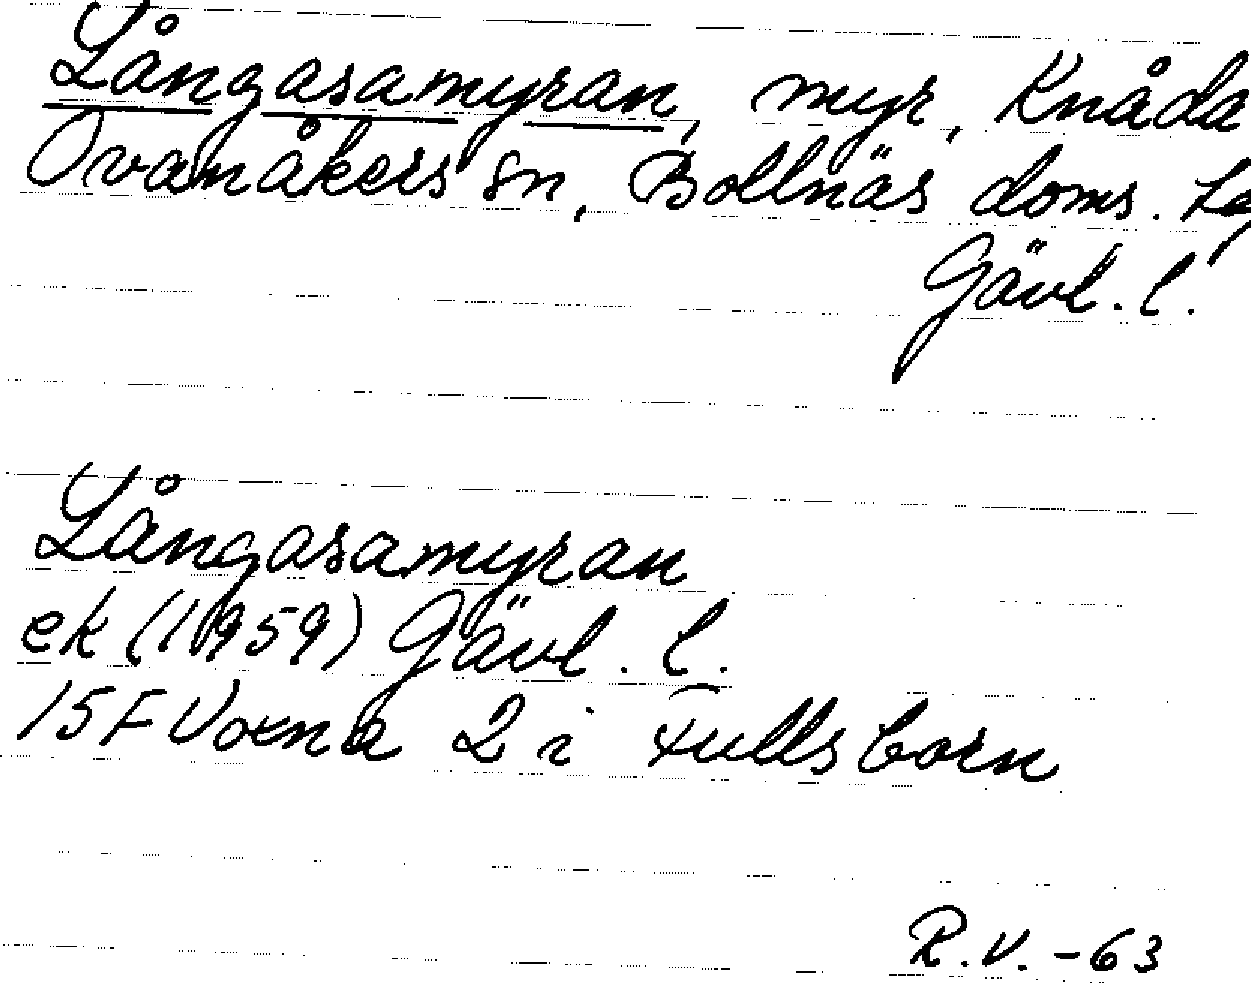 Långasamyran, myr, Knåda
Ovanåkers sn, Bollnäs doms.
Gävl. l.
Långasamyran
ek (1959) Gävl. l.
15F Voxna 2 i Fullsborn
R.V. -63